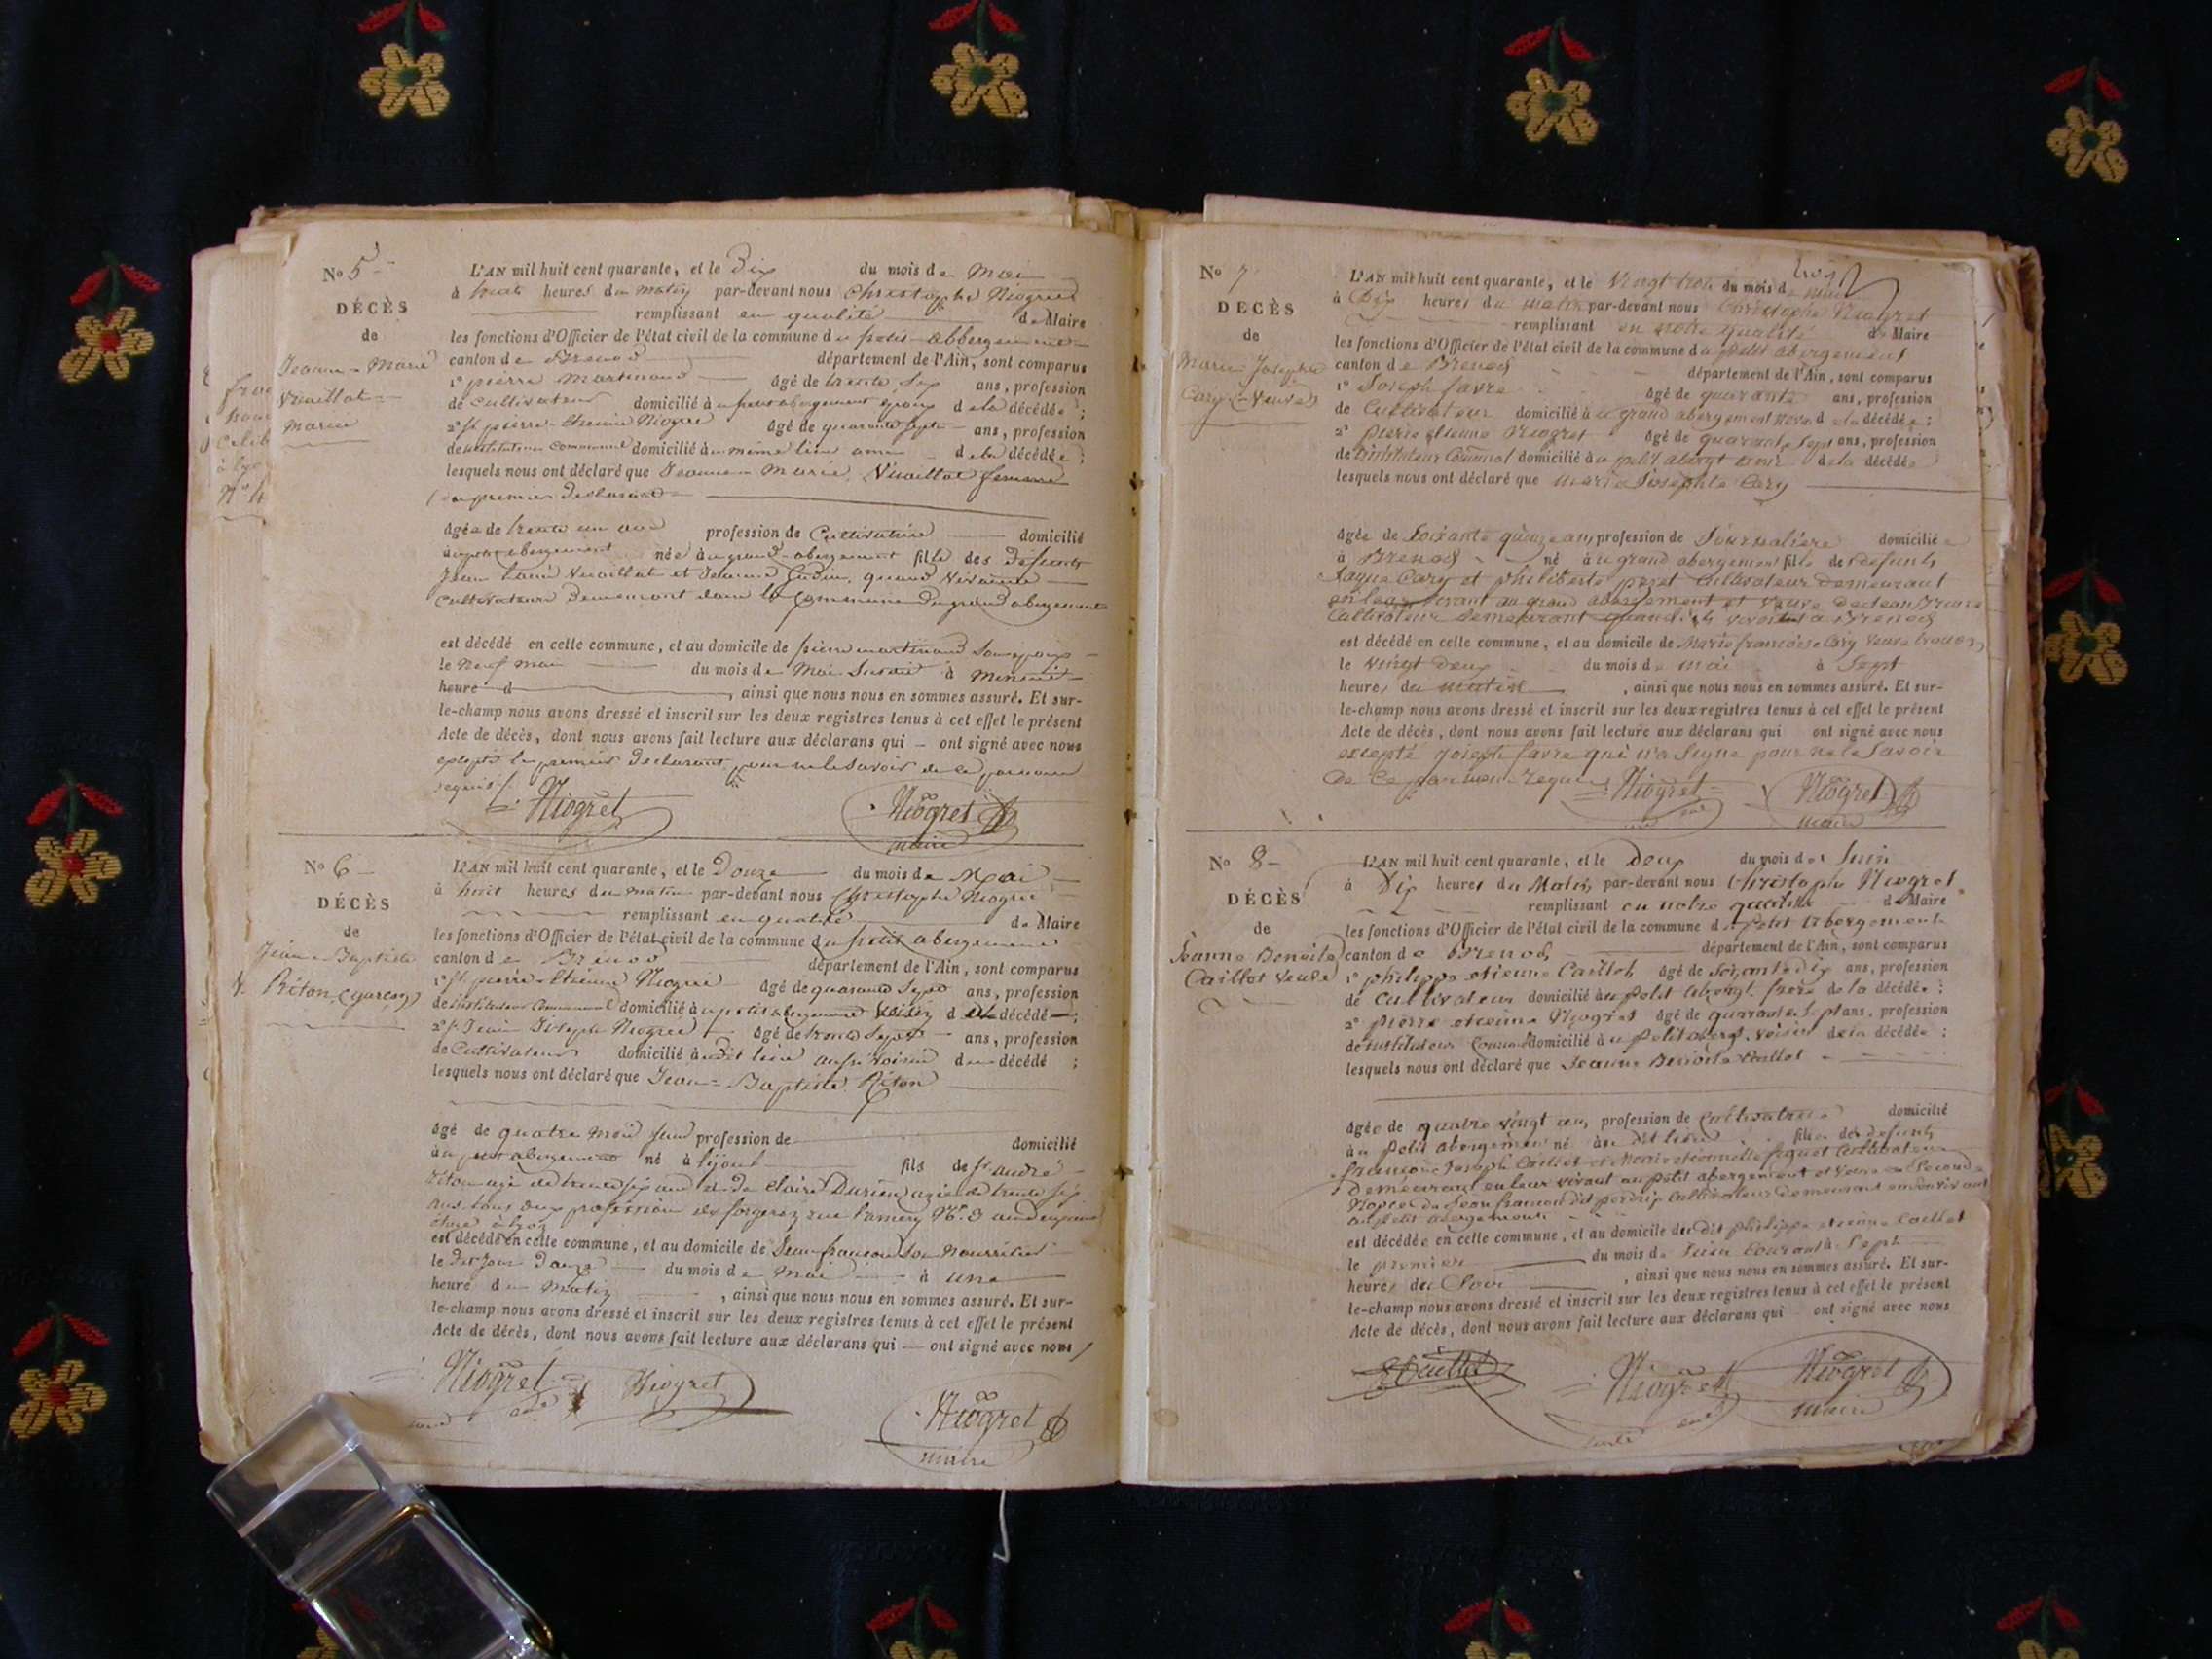 No 5
DÉCÈS
de
Jeanne-Marie
Vuaillat
Mariée
L'AN mil huit cent quarante, et le Dix du mois de Mai
à heures du matin par-devant nous Christophe Niogret
remplissant en qualité de Maire
les fonctions d'Officier de l'état civil de la commune du petit-abbergement
canton de Brenod département de l'Ain, sont comparus
1º pierre Martinand âgé de trente six ans, profession
de Cultivateur domicilié à petit abergement époux de la décédée ;
2º St pierre-Etienne Niogret âgé de quarante sept ans, profession
d'instituteur Communal domicilié au même lieu ami de la décédée ;
lesquels nous ont déclaré que Jeanne Marie Vuaillat femme
du premier Déclarant
âgée de trente un ans profession de Cultivatrice domicilié
à petit abergement née au grand-abergement fille des Défunts
Jean Vuaillat et Jeanne quand vivaient
Cultivateurs Demeurant dans la Commune du grand abergement
est décédé en cette commune, et au domicile de pierre martinand Son époux
le Neuf mai du mois de Mai à Minuit
heure d , ainsi que nous nous en sommes assuré. Et sur-
le-champ nous avons dressé et inscrit sur les deux registres tenus à cet effet le présent
Acte de décès, dont nous avons fait lecture aux déclarans qui ont signé avec nous
excepté le premier Déclarant pour ne le Savoir de ce
requis
Niogret Niogret
maire
No 6
DÉCÈS
de
Jean-Baptiste
Réton (garçon)
L'AN mil huit cent quarante, et le Douze du mois de Mai
à huit heures du matin par-devant nous Christophe Niogret
remplissant en qualité de Maire
les fonctions d'Officier de l'état civil de la commune du petit abergement
canton de Brenod département de l'Ain, sont comparus
1º St pierre-Etienne Niogret âgé de quarante Sept ans, profession
de instituteur Communal domicilié à petit abergement Voisin d décédé ;
2º St Jean Joseph Niogret âgé de trente Sept ans, profession
de Cultivateur domicilié au Dit lieu aussi voisin du décédé ;
lesquels nous ont déclaré que Jean-Baptiste Réton
âgé de quatre Mois profession de domicilié
au petit abergement né à fils de St andré
Réton agé de trente six ans et de Claire Durieu agée de trente six
ans tous deux profession de forgerez rue No 3
est décédé en cette commune, et au domicile de Jean françon Son Nourricier
le Dit Jour Douze du mois de Mai à une
heure du Matin , ainsi que nous nous en sommes assuré. Et sur-
le-champ nous avons dressé et inscrit sur les deux registres tenus à cet effet le présent
Acte de décès, dont nous avons fait lecture aux déclarans qui ont signé avec nous
Niogret Niogret
Niogret
maire
No 7
DECÈS
de
Marie Josephte
Cary (veuve)
L'AN mil huit cent quarante, et le Vingt trois du mois de mai
à Dix heures du matin par-devant nous Christophe Niogret
remplissant en notre qualité de Maire
les fonctions d'Officier de l'état civil de la commune du petit abergement
canton de Brenod département de l'Ain, sont comparus
1º Joseph favre âgé de quarante ans, profession
de Cultivateur domicilié au grand abergement de la décédée ;
2º pierre etienne Niogret âgé de quarante Sept ans, profession
de instituteur Communal domicilié au petit abergt de la décédée
lesquels nous ont déclaré que marie Josephte Cary
âgée de Soixante quinze ans, profession de Journalière domiciliée
à Brenod né au grand abergement fille de defunts
Jaque Cary et philiberte pezet Cultivateur demeurant
en leur vivant au grand abergement et veuve de Jean
Cultivateur demeurant quand ils vivoient a Brenod
est décédé en cette commune, et au domicile de Marie françoise Cary veuve
le vingt Deux du mois de mai à Sept
heures du matin , ainsi que nous nous en sommes assuré. Et sur-
le-champ nous avons dressé et inscrit sur les deux registres tenus à cet effet le présent
Acte de décès, dont nous avons fait lecture aux déclarans qui ont signé avec nous
excepté joseph favre qui n'a Signé pour ne le Savoir
De Ce requis Niogret Niogret
maire
No 8
DÉCÈS
de
Jeanne Benoite
Caillot veuve
L'AN mil huit cent quarante, et le Deux du mois de Juin
à Dix heures du Matin par-devant nous Christophe Niogret
remplissant en notre qualité de Maire
les fonctions d'Officier de l'état civil de la commune du petit Abergement
canton de Brenod département de l'Ain, sont comparus
1º philippe etienne Caillot âgé de Soixante dix ans, profession
de Cultivateur domicilié au petit abergt. frère de la décédée ;
2º pierre etienne Niogret âgé de quarante Sept ans, profession
de instituteur Communal domicilié au petit abergt. voisin de la décédée ;
lesquels nous ont déclaré que Jeanne Benoite Caillot
âgée de quatre vingt un, profession de Cultivatrice domicilié
au Petit abergement né au dit lieu fille des defunts
françois Joseph Caillot et Marie pezet Cultivateur
Demeurant en leur vivant au petit abergement et veuve en Seconde
Noces de Jean francon dit perdrix Cultivateur demeurant en son vivant
au petit abergement
est décédée en cette commune, et au domicile du dit philippe etienne Caillot
le premier du mois de Juin Courant à Sept
heures du Soir , ainsi que nous nous en sommes assuré. Et sur-
le-champ nous avons dressé et inscrit sur les deux registres tenus à cet effet le présent
Acte de décès, dont nous avons fait lecture aux déclarans qui ont signé avec nous
Caillot Niogret Niogret
maire